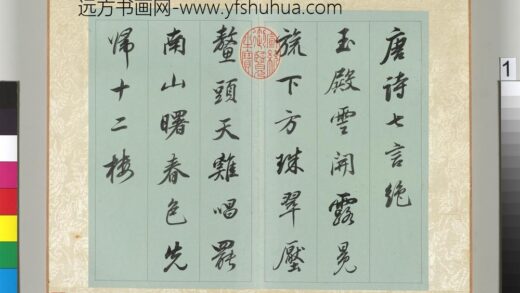 远方书画网-www.yfshuhua.com
唐诗七言绝
玉殿雲開露冕
旒下方珠翠壓
鳌頭天雞唱罷
南山曙春色先
歸十二楼
1